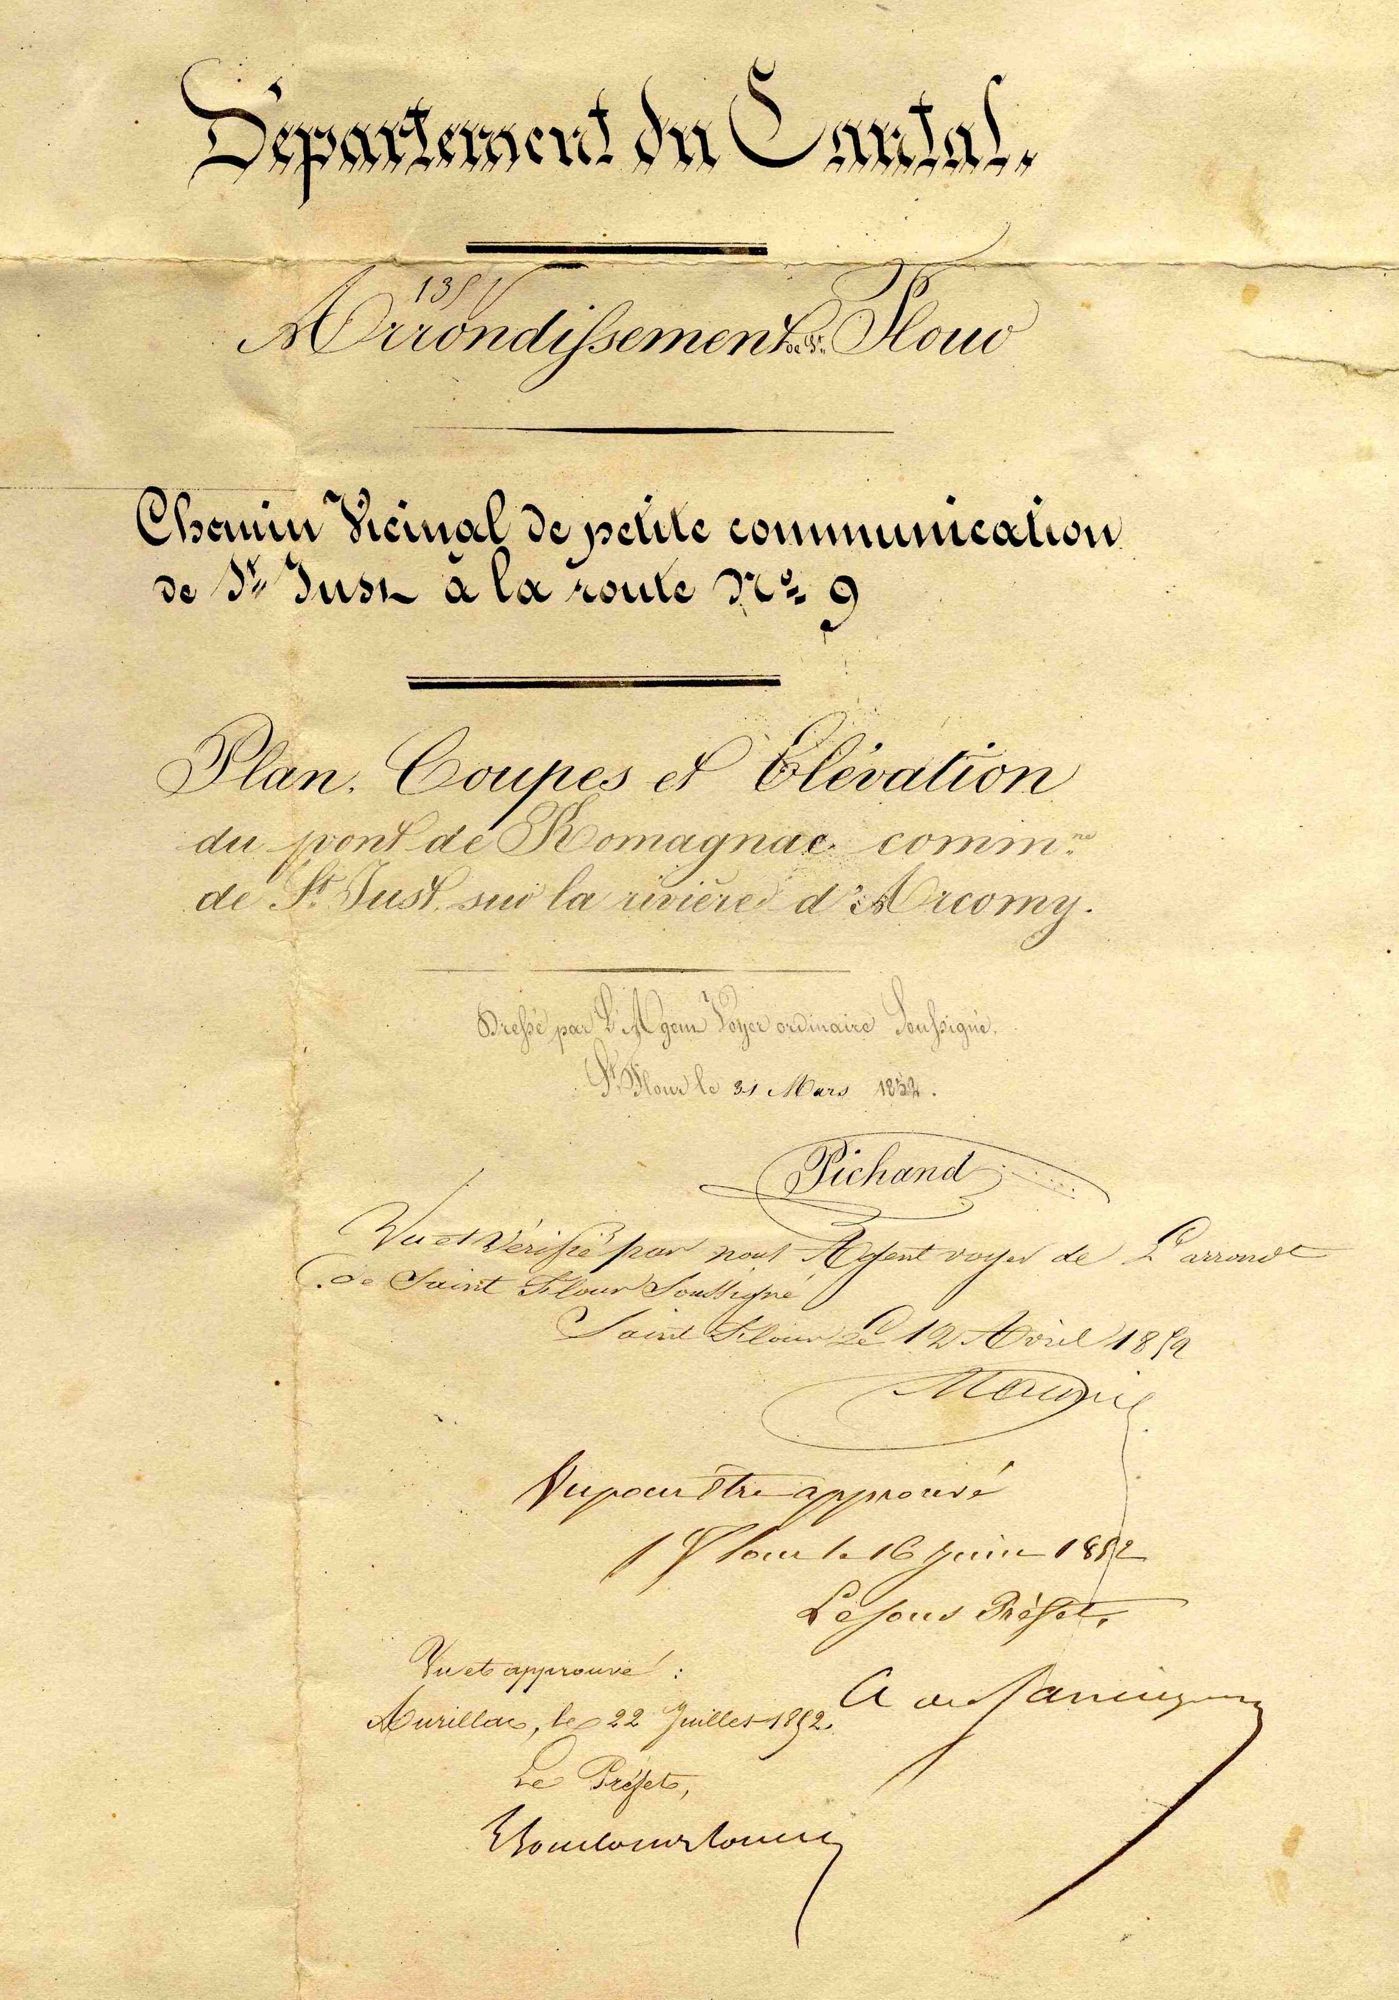 Département du Cantal.
Arrondissement de St. Flour
Chemin Vicinal de petite communication
de St. Just à la route No. 9
Plan, Coupes et Élévation
du pont de Romagnac comm.ne
de St. Just sur la rivière d'Arcomy.
Dressé par L'Agent Voyer ordinaire Soussigné.
St. Flour le 31 Mars 1852.
Pichand
Vu et Vérifié par nous Agent voyer de L'arrondt
de Saint Flour Soussigné
Saint Flour Le 12 Avril 1852
Vu pour être approuvé
St Flour le 16 juin 1852
Le sous Préfet,
Vu et approuvé :
A de
Aurillac, le 22 Juillet 1852.
Le Préfet,